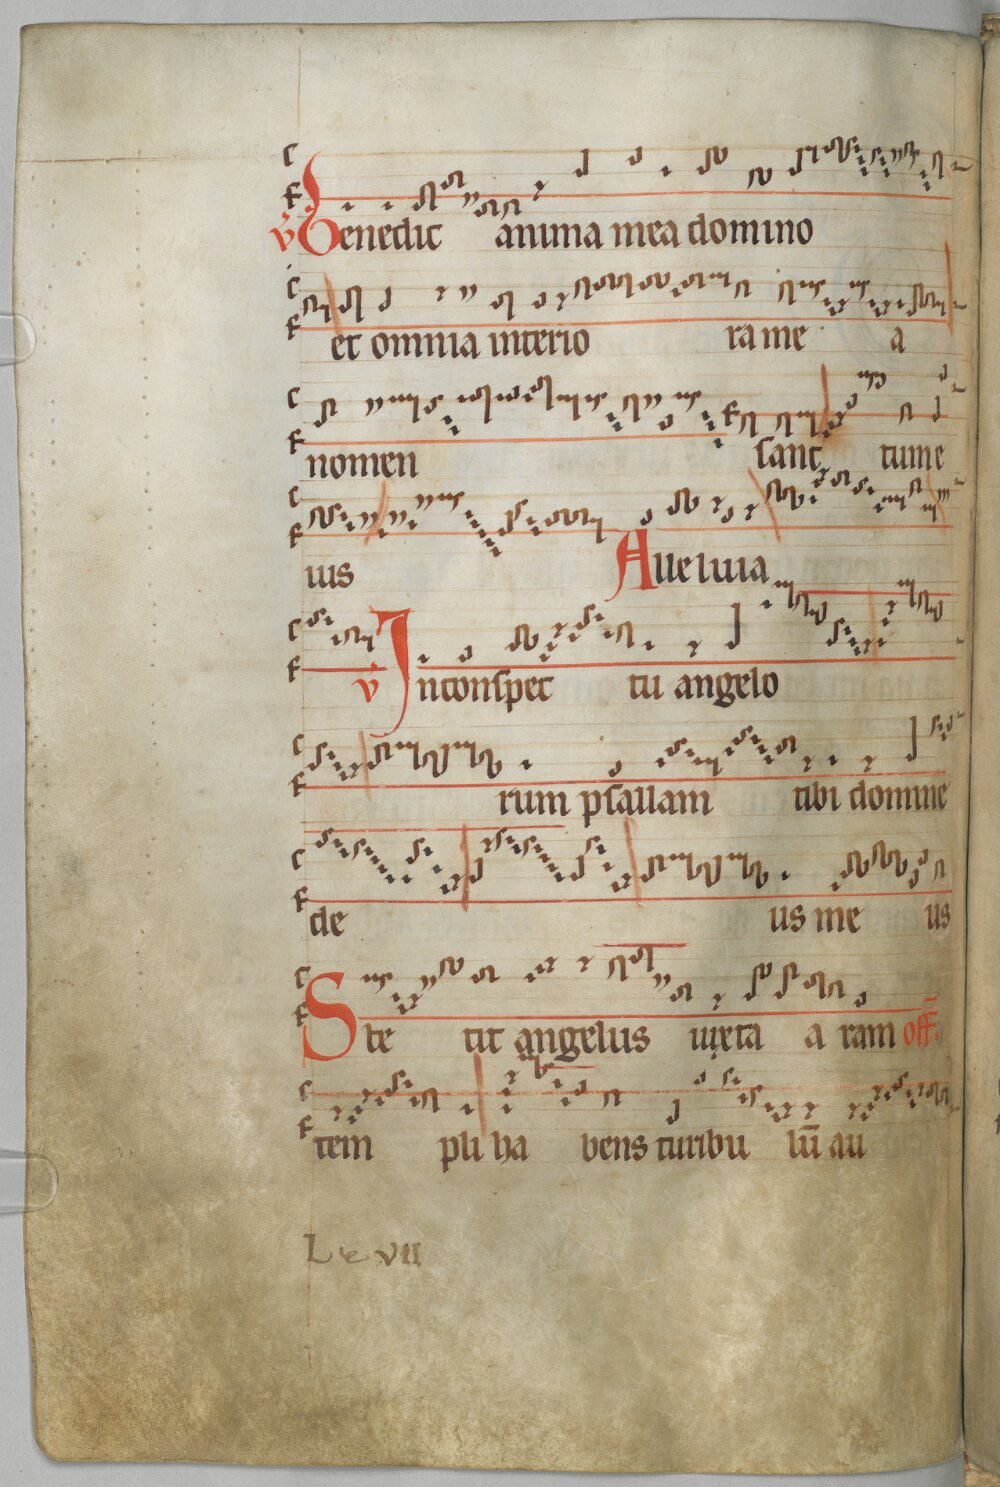 v̄ Benedic anima mea domino
et omnia interio ra me a
nomen sanc tum e
ius Alleluia
v̄ In conspec tu angelo
rum psallam tibi domine
de us me us
Ste tit angelus iuxta a ram off̄.
tem pli ha bens turibu lū au